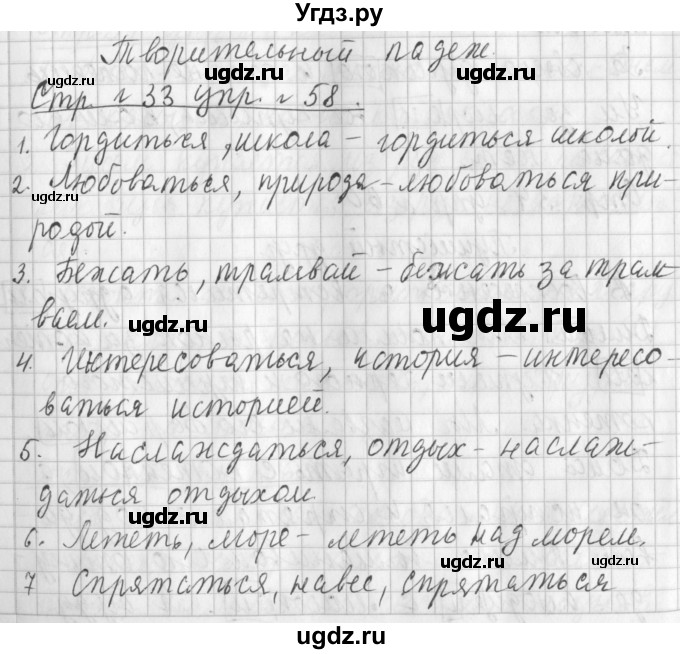 Угдз.ру
Творительный падеж.
ugdz.ru ugdz.ru
Стр. № 33 упр. № 58.
1. Гордиться, школа – гордиться школой.
ugdz.ru
2. Любоваться, природа – любоваться при-
ugdz.ru
родой.
3. Бежать, трамвай – бежать за трам
ugdz.ru
ваем.
ugdz.ru ugdz.ru
4. Интересоваться, история – интересо-
ugdz.ru
ваться историей.
5. Наслаждаться, отдых – наслаж-
даться отдыхом
ugdz.ru ugdz.ru
6. Лететь, море – лететь над морем.
7 Спрятаться, навес, спрятаться
ugdz.ru